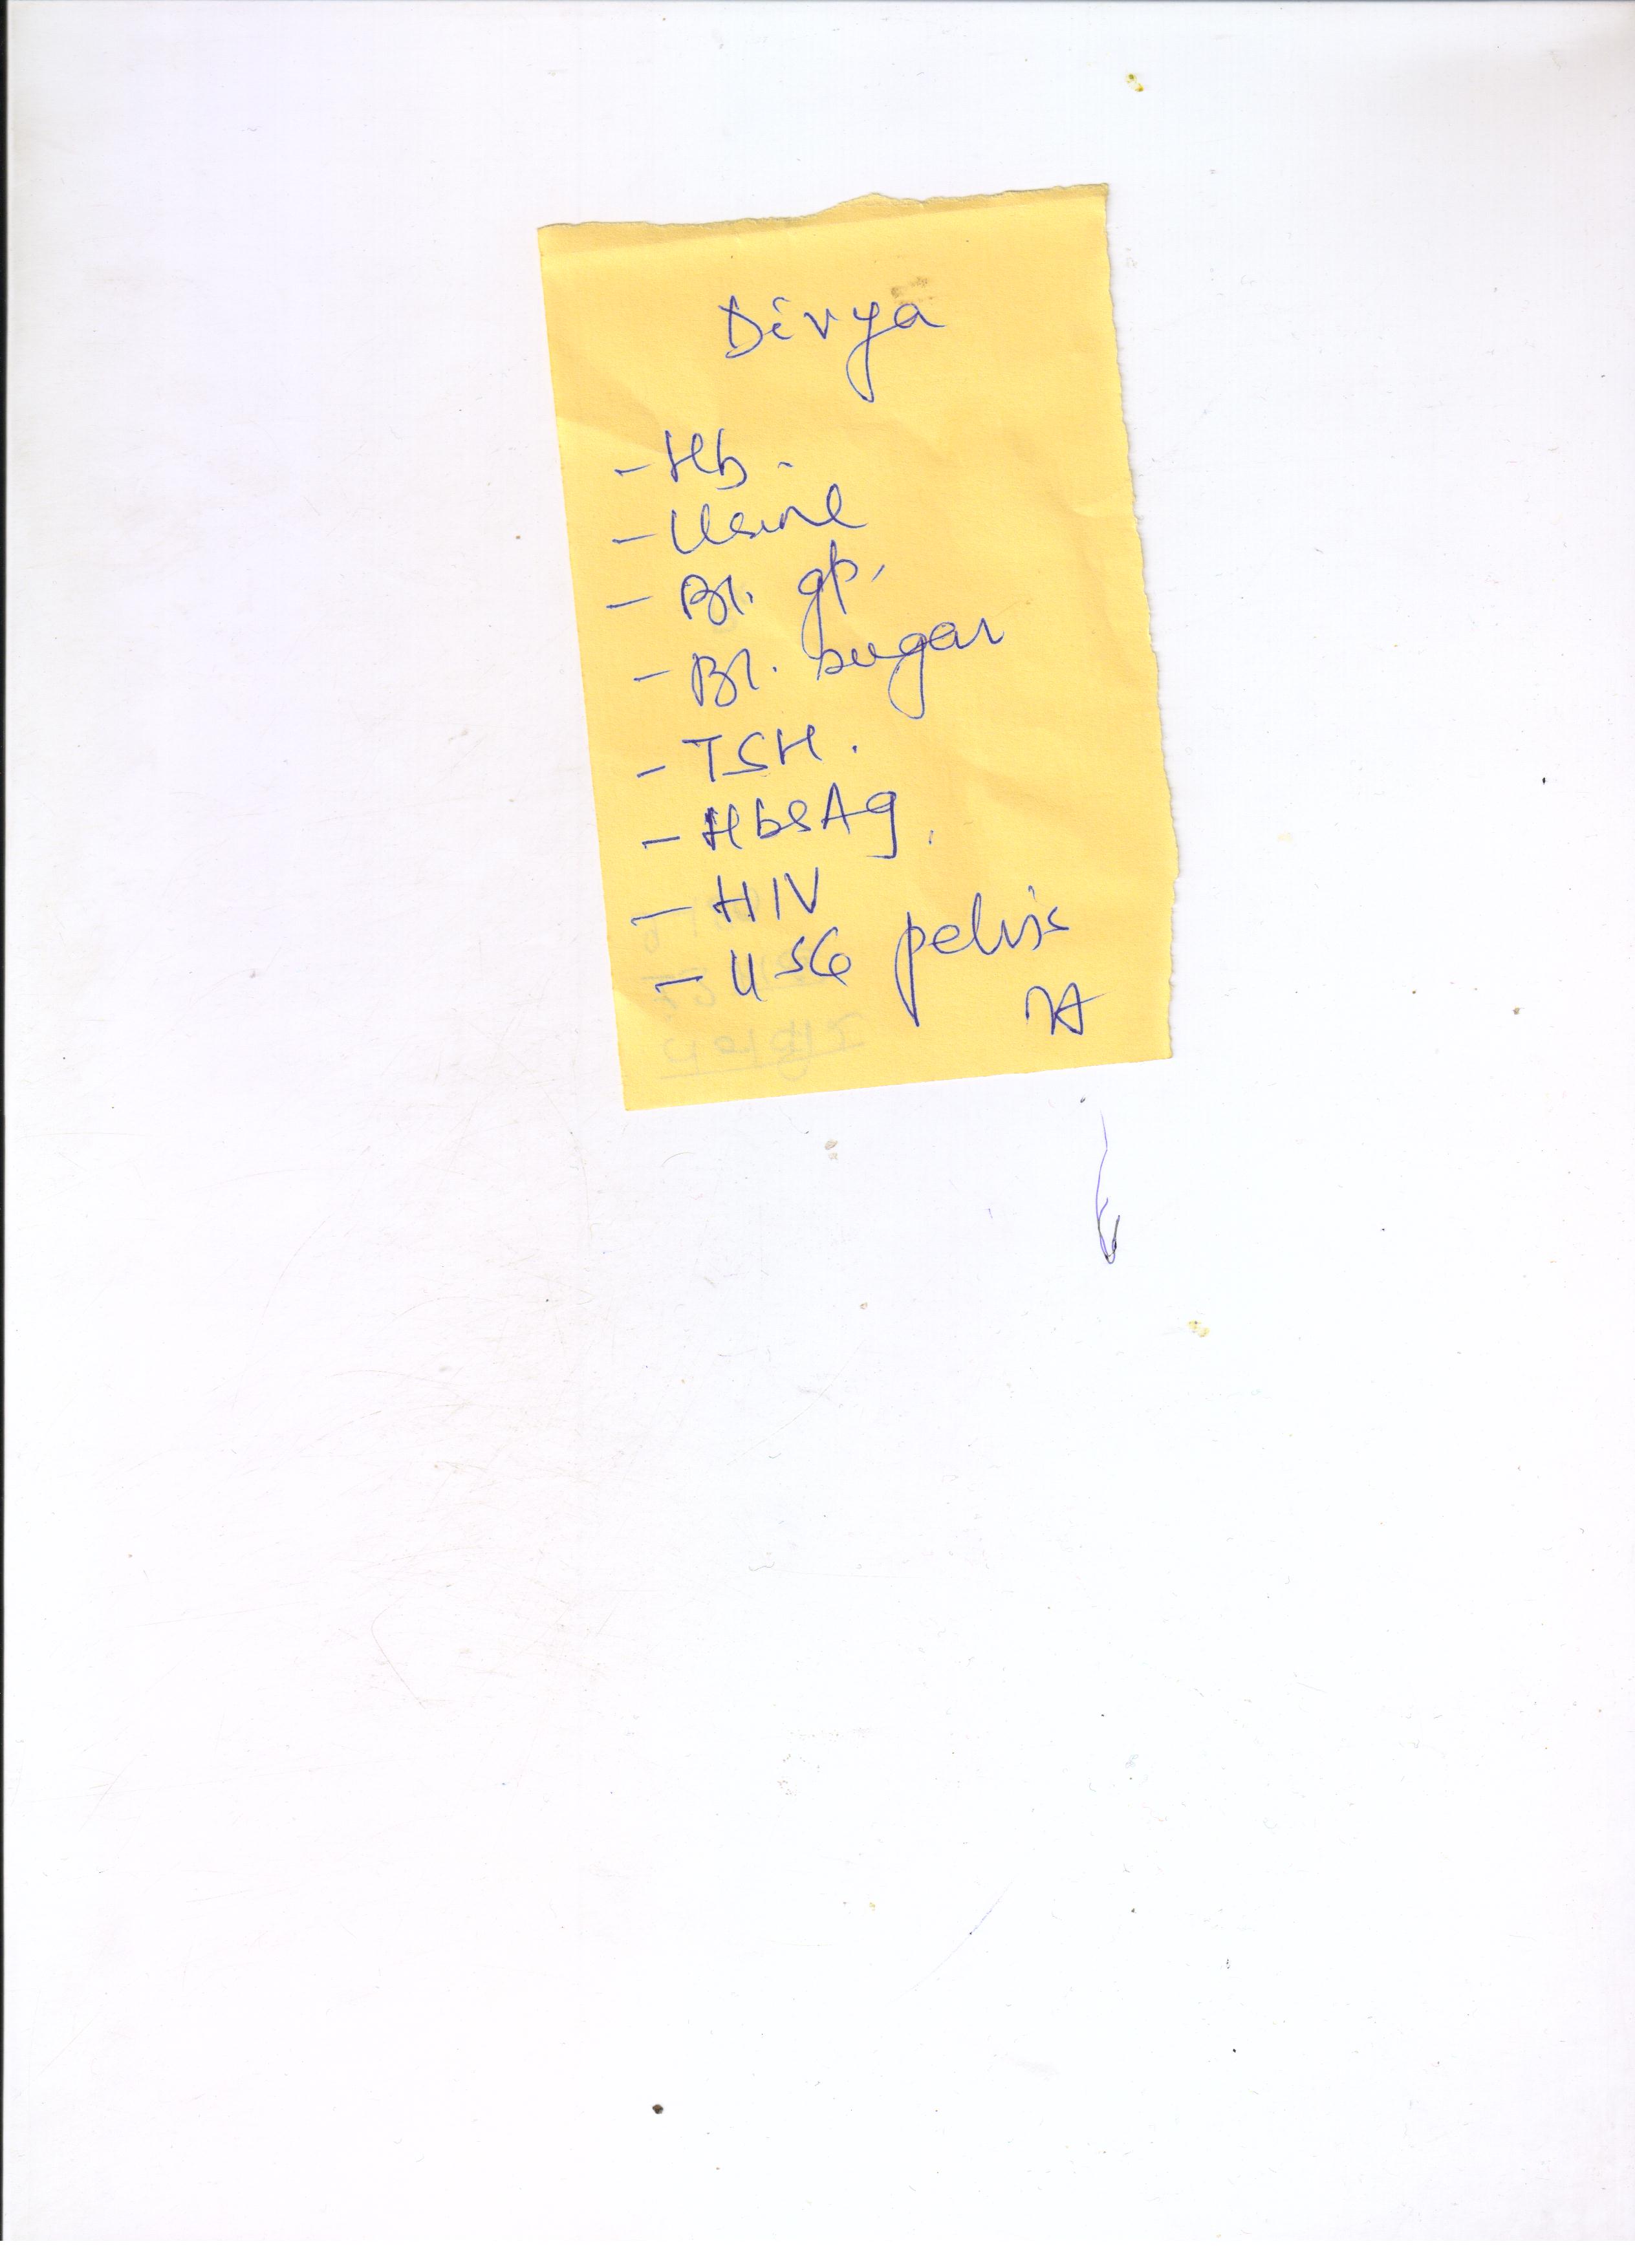 Divya
- Hb.
- Urine
- Bl. gp.
- Bl. sugar
- TSH.
- HbsAg.
- HIV
- USG pelvis